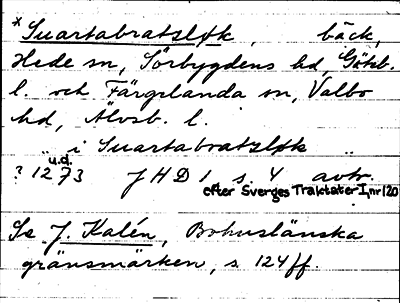 *Suartabratzløk, bäck,
Hede sn, Sörbygdens hd, Göteb.
l. och Färgelanda sn, Valbo
hd, Älvsb. l.
"i Suartabratzløk"
u.d.
? 1273 JHD 1 s. 4 avtr.
efter Sverges Traktater I, nr 120
Se J. Kalén, Bohuslänska
gränsmärken, s 124 ff.